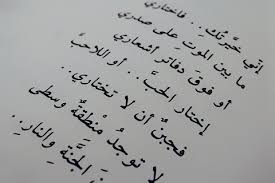 إني خيّرتُكِ.. فاختاري
ما بين الموتِ على صدري
أو فوقَ دفاترِ أشعاري
إختاري الحبَّ.. أو اللاحبَّ
فجبنٌ أن لا تختاري..
لا توجدُ مِنْطقةٌ وسطى
بين الجنّةِ والنارِ..